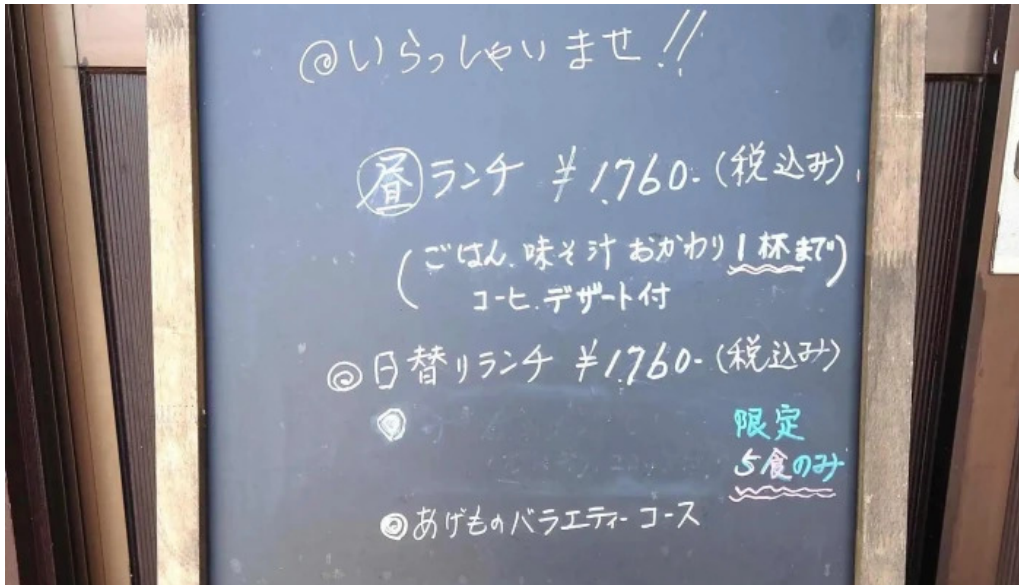 ◎いらっしゃいませ!!
昼ランチ ¥1,760-(税込み)
(ごはん、味そ汁 おかわり1杯まで)
コーヒ、デザート付
◎日替りランチ ¥1,760-(税込み)
限定
5食のみ
◎あげものバラエティーコース